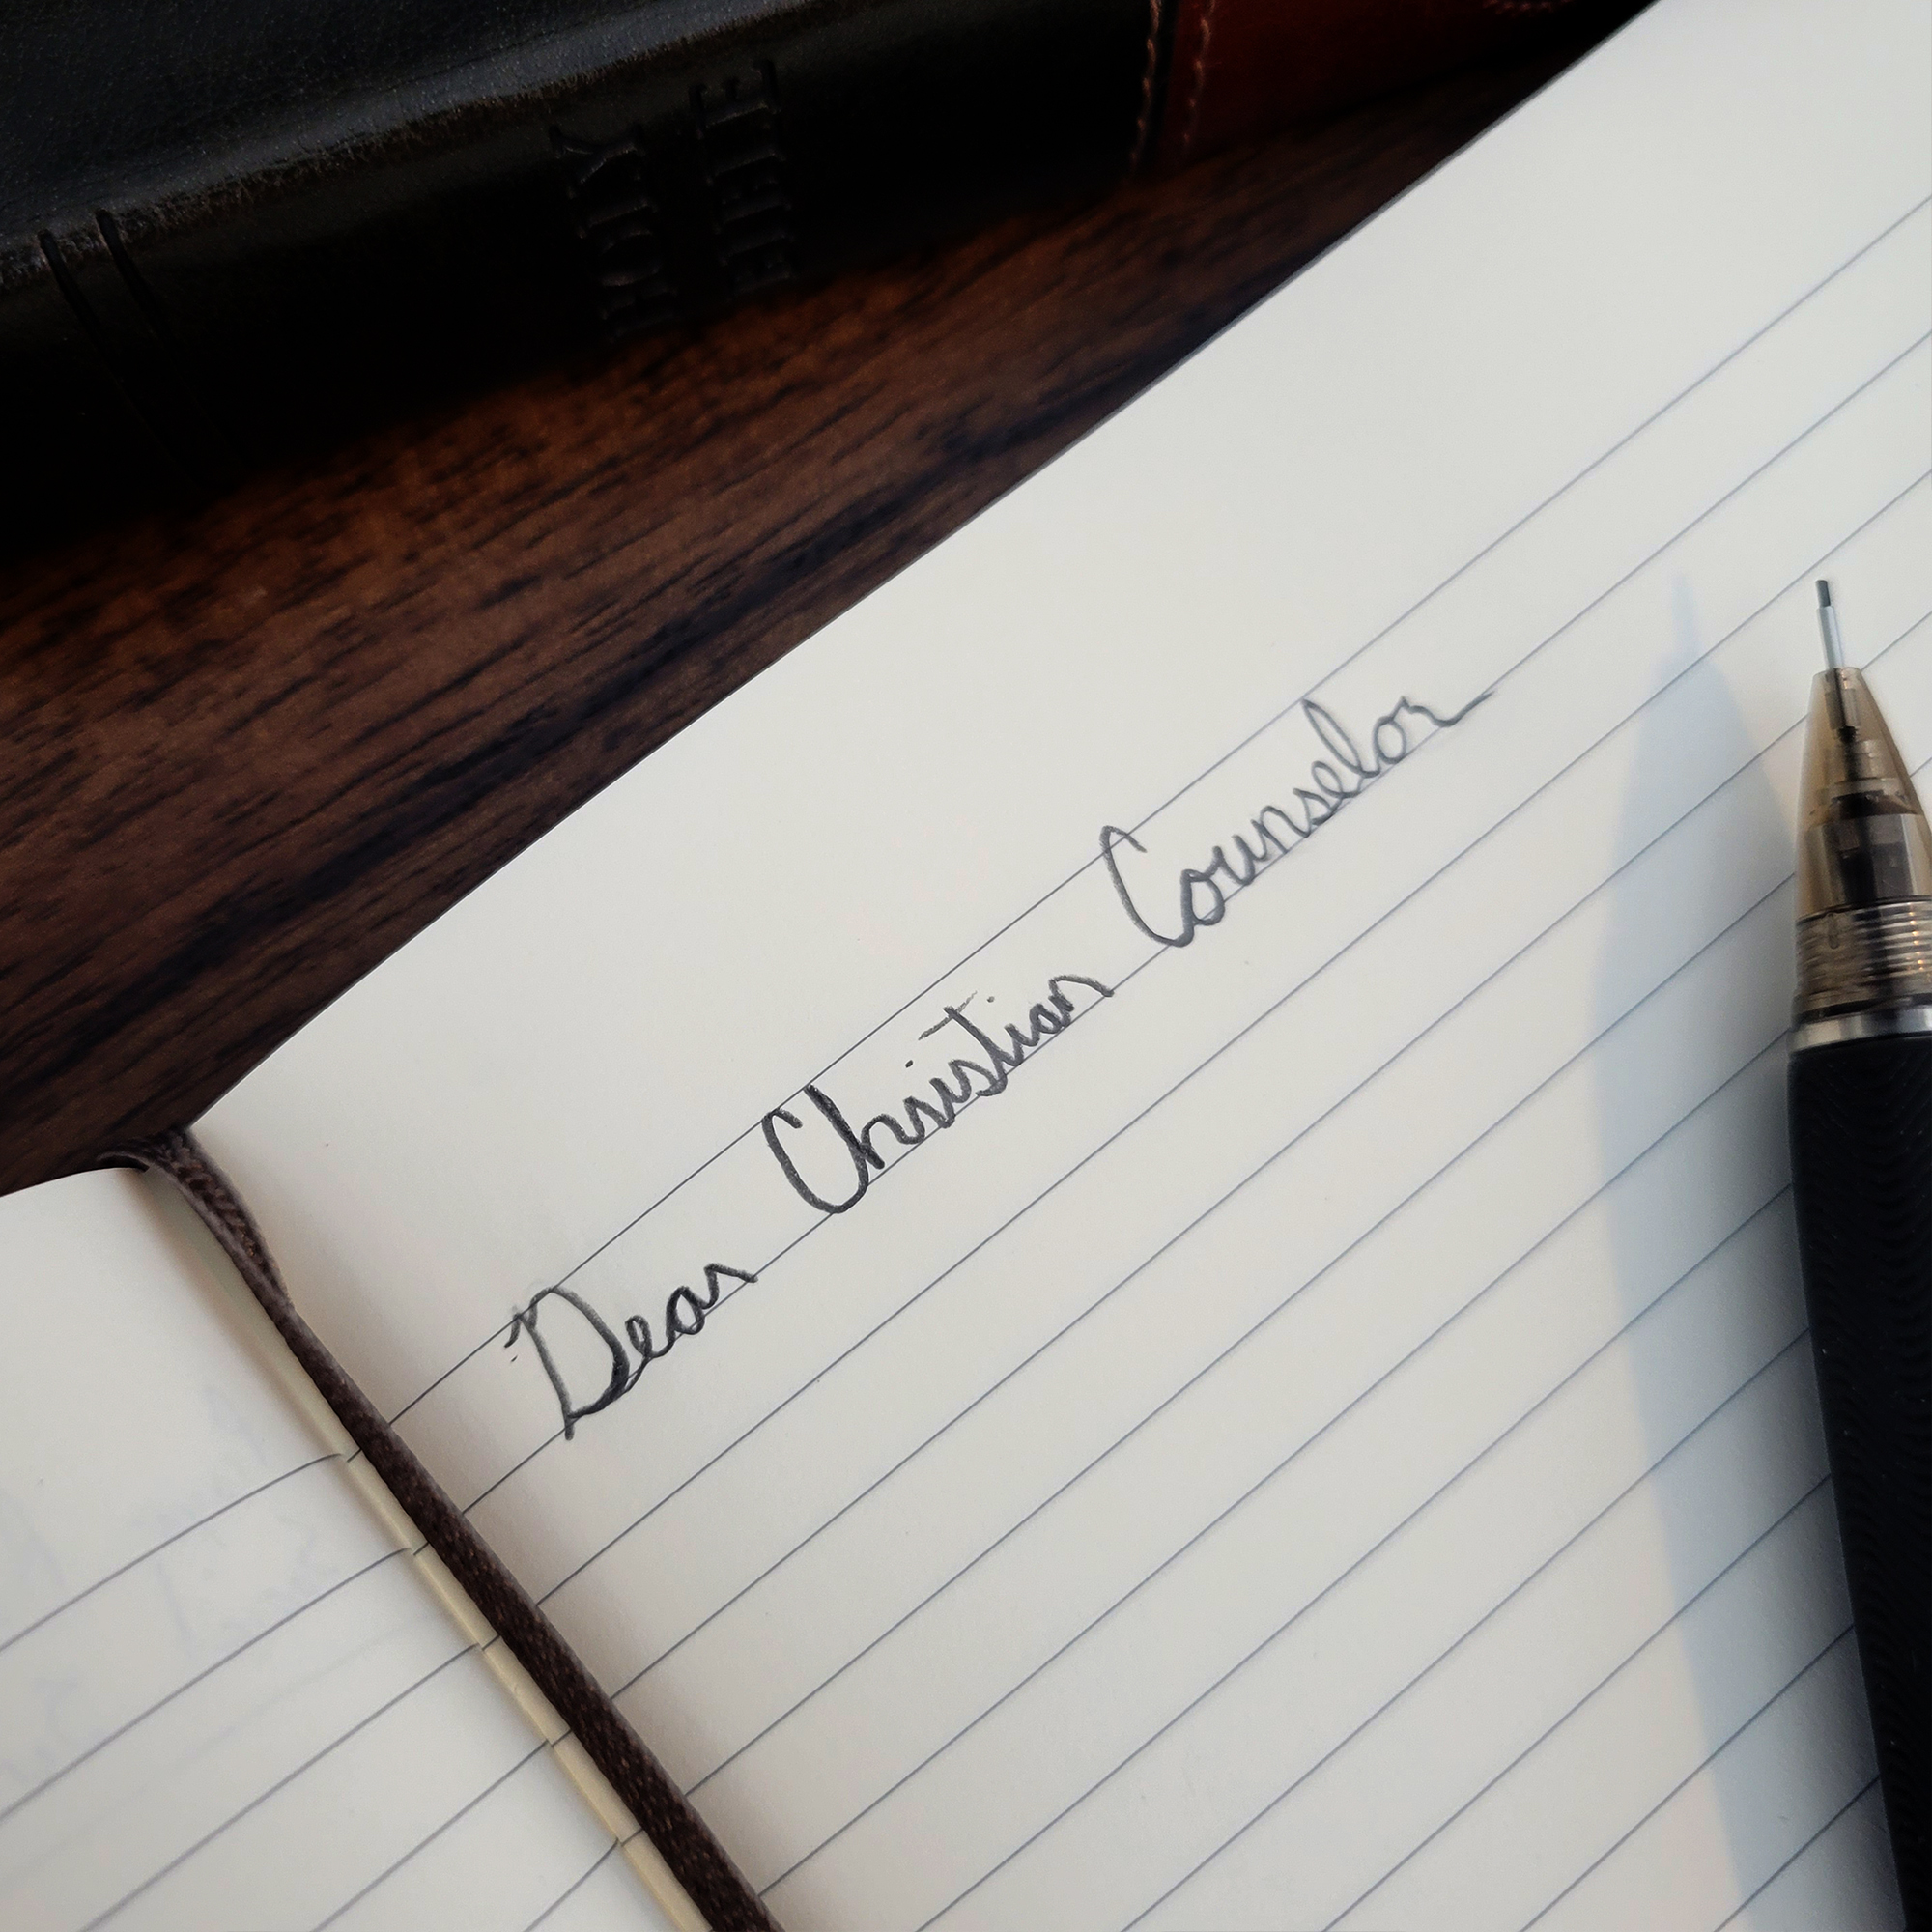 THE
HOLY
Dear Christian Counselor